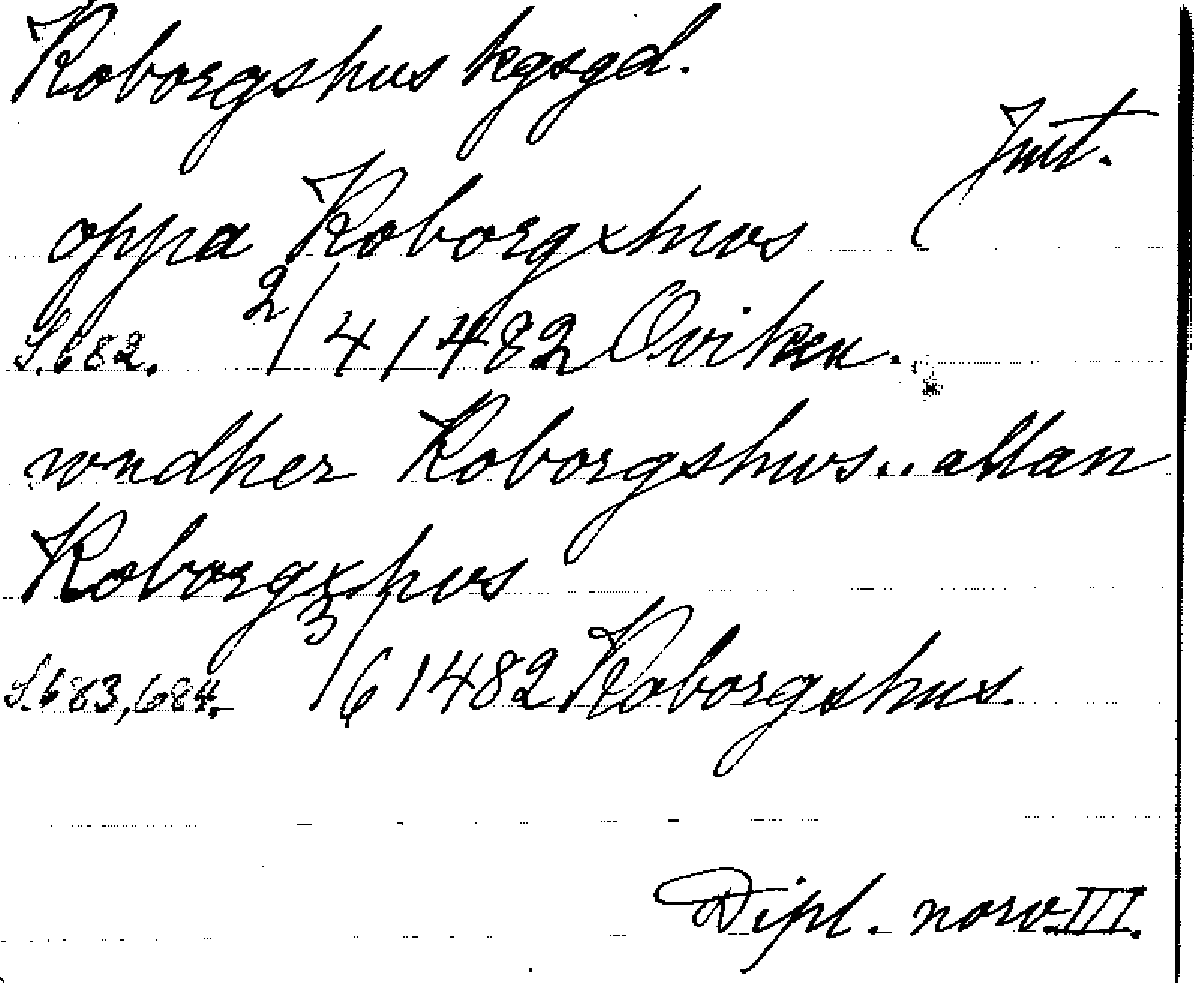 Roborgshus kgsgd.
Jmt.
oppa Roborgxhws
S. 682. 2/4 1482 Oviken.
wndher Roborgshws.. allan
Roborgxhws
S. 683, 684. 3/6 1482 Roborgshus.
Dipl. norv. III.